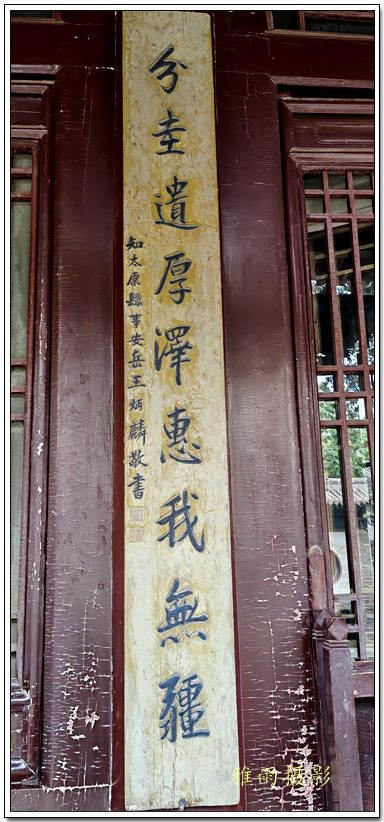 分圭遺厚澤惠我無疆
知太原縣事安岳王炳麟敬書
雅雨摄影